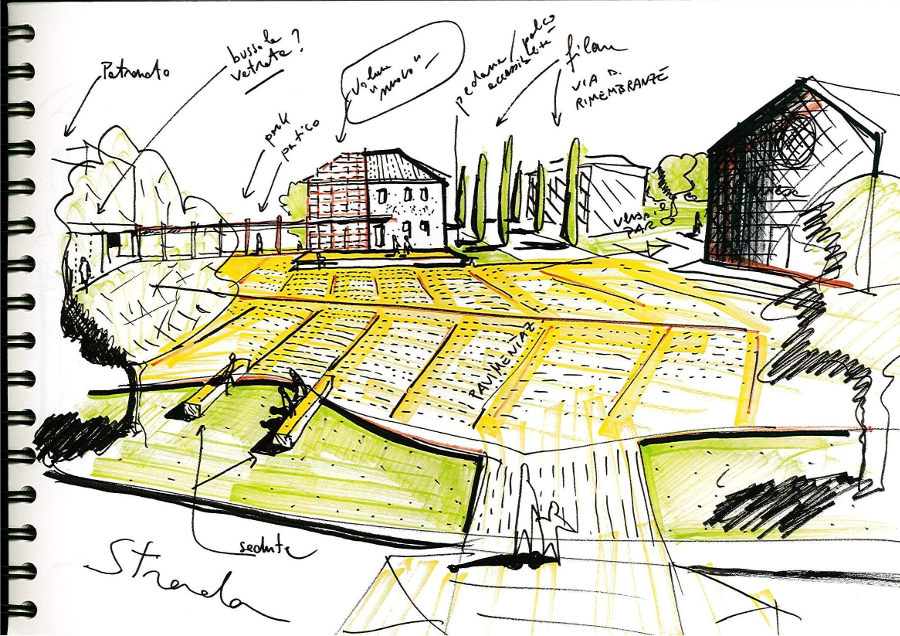 Petronato
bussola
vetrata?
park
portico
volume
"nuovo"
pedana / palco
accessibile
filari
VIA D.
RIMEMBRANZE
VERSO IL
PAR
PAVIMENTAZ
sedute
Strada